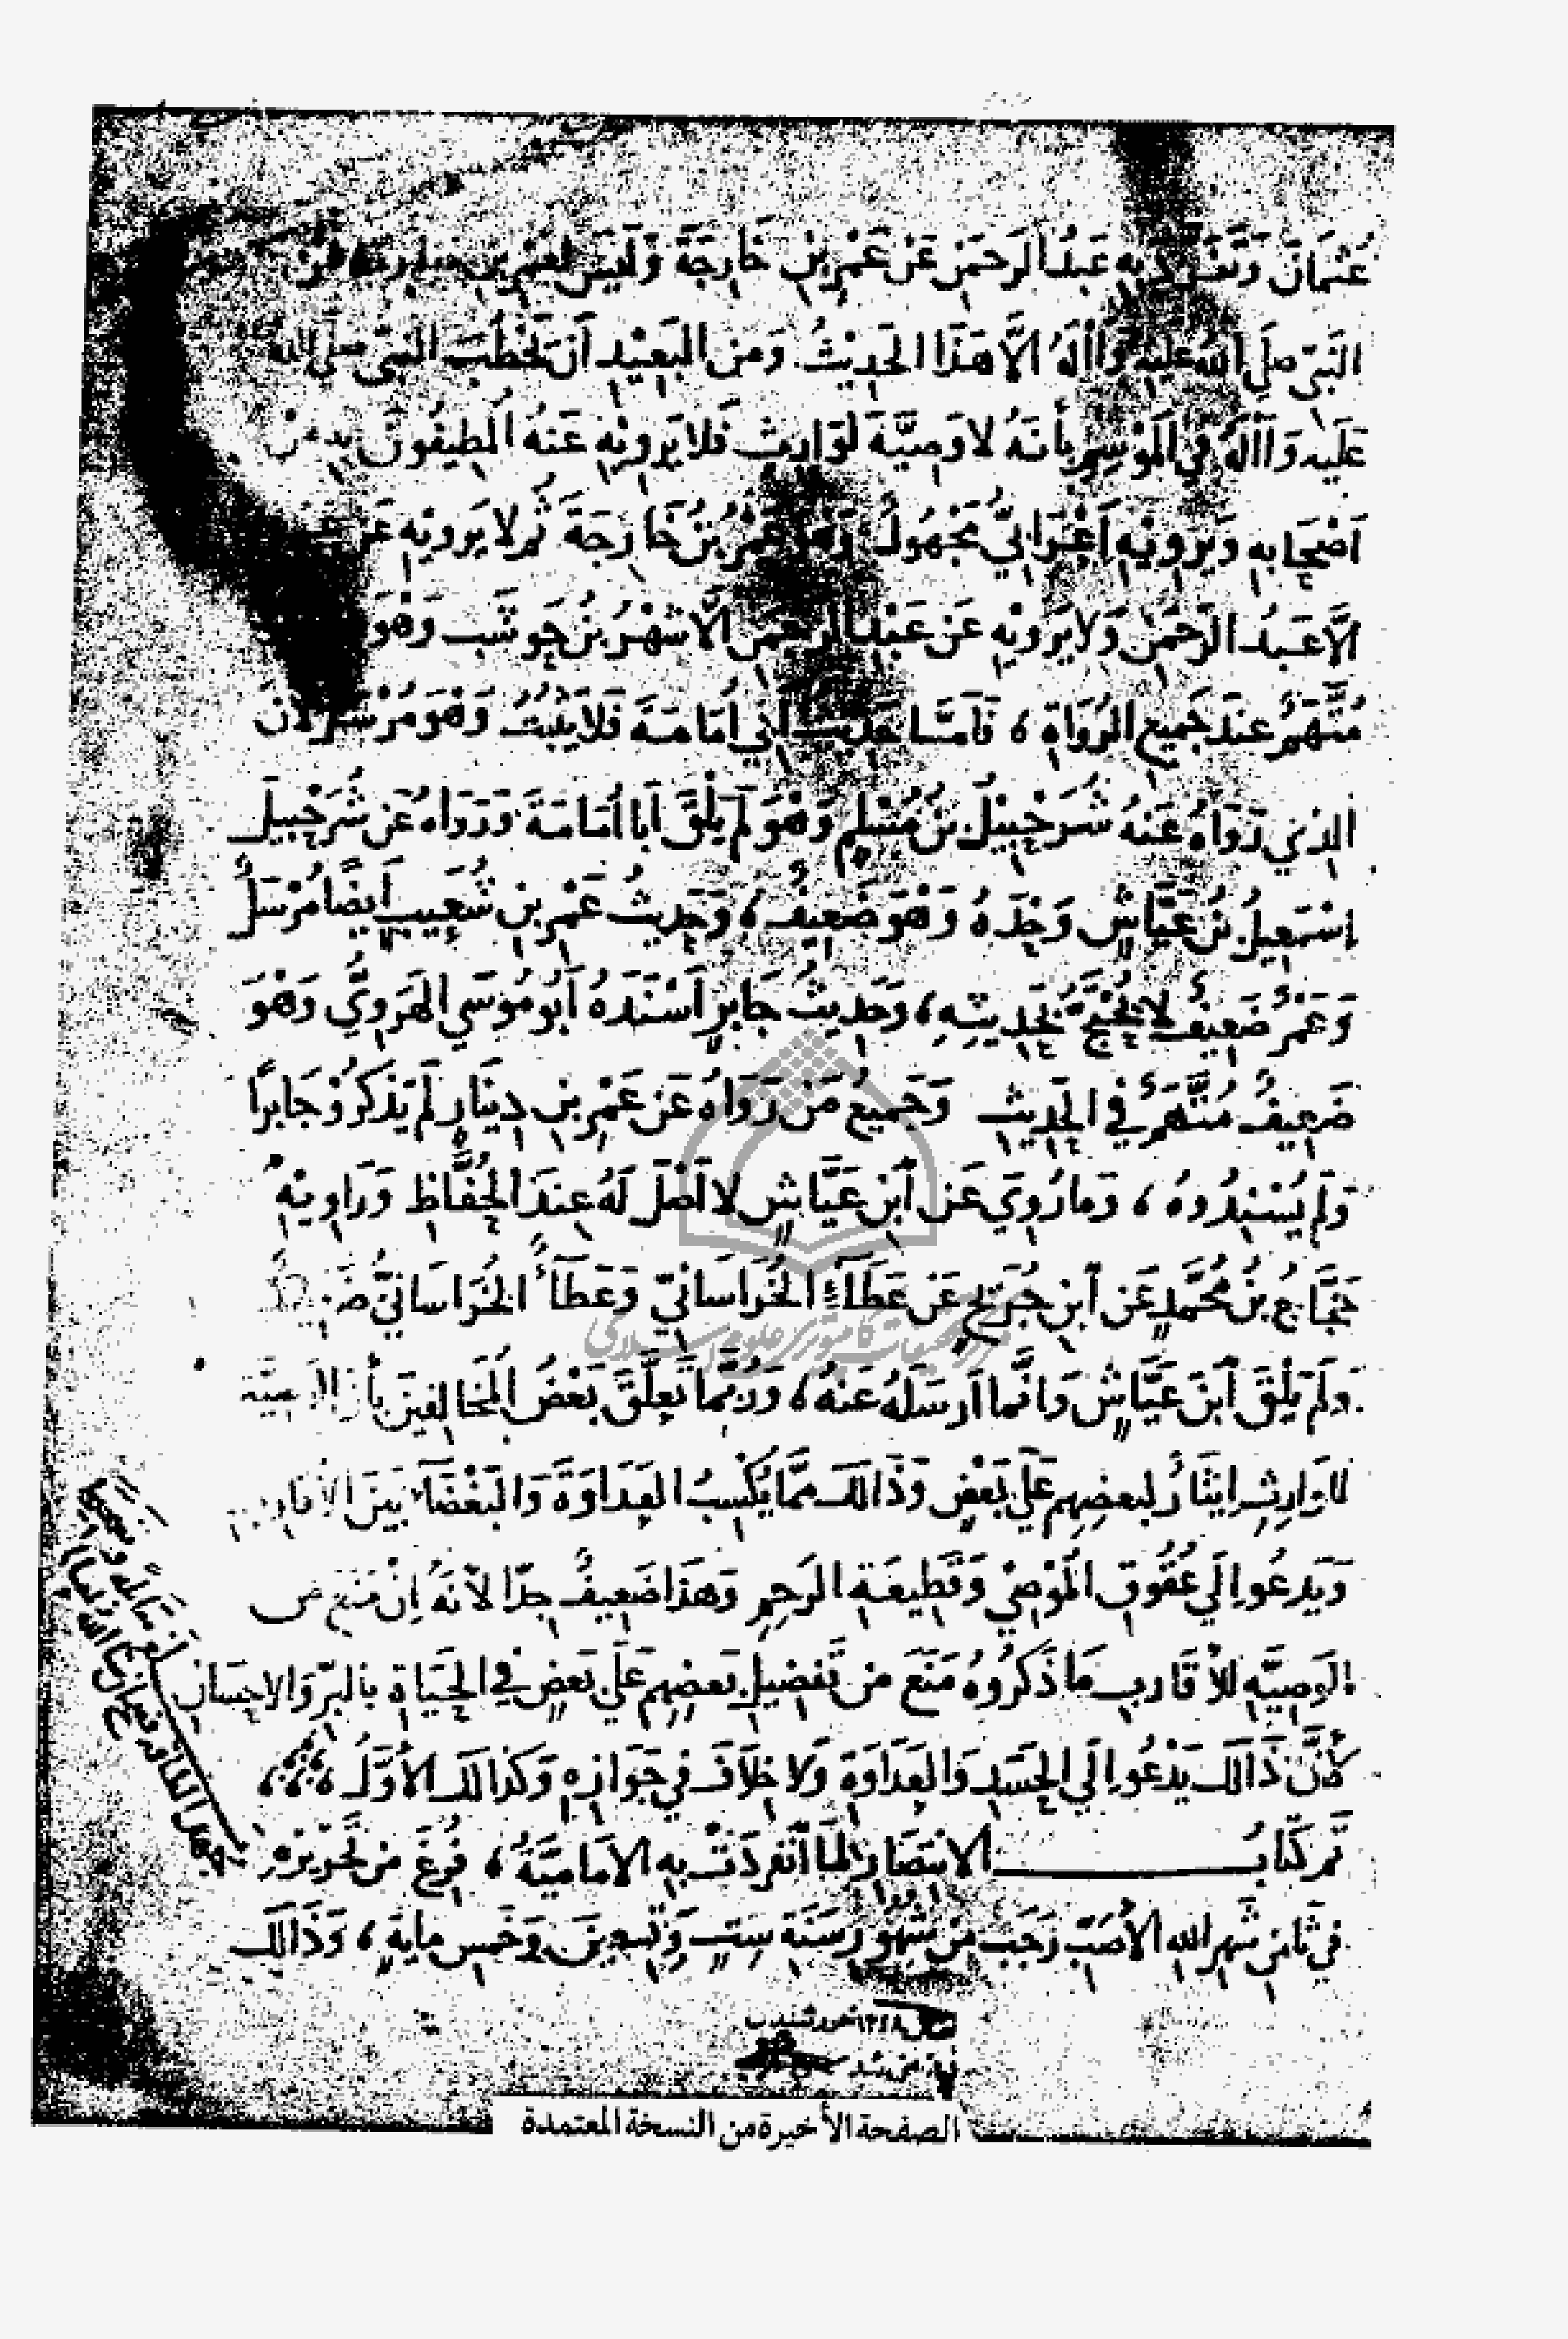 عُثمَانَ وَتَفَرَّدَ بِهِ عَبدُ الرَحمَنِ عَن عَمْرِ بنِ خَارِجَةَ وَلَيسَ لعَمْرِ بنِ خارجة عن
النَبِيِّ صلى الله عليه وَاآلهُ الَّا هَذَا الحَدِيثُ وَمنَ البَعِيْدِ أنْ يَخْطُبَ النَبِيُّ صلى الله
عَلَيه وَاآلهُ في المَوْسِمِ بأَنَهُ لا وَصِيَّةَ لوَارِثٍ فَلا يَروِيْهِ عَنهُ المُطِيفُونَ بِهِ مِنْ
أَصْحَابِهِ وَيَروِيْهِ أعْرَابيٌّ مَجْهُولٌ وَهْوَ عَمْرُ بنُ خَارِجَةَ ثُمَ لا يَرويْهِ عَن
الَّا عَبدُ الرَحمَنِ وَلا يَرويْهِ عَن عَبْدِ الرَحمَنِ الَّا شَهْرُ بنُ حَوشَبٍ وَهْوَ
مُتَّهَمٌ عندَ جَميعِ الرُوَاةِ ، فَأَمَّا حَدِيثُ أبي أُمَامَةَ فَلا يَثْبُتُ وَهْوَ مُرْسَلٌ لانَّ
الذي رَوَاهُ عَنهُ شُرَحْبِيْلُ بنُ مُسْلمٍ وَهْوَ لَمْ يَلْقَ أبا أُمَامَةَ وَرَوَاهُ عَن شُرَحْبِيلَ
إسْمَعِيلُ بنُ عَيَّاشٍ وَحْدَهُ وَهْوَ ضَعِيفٌ ، وَحَدِيثُ عَمْرِ بنِ شُعَيبٍ أَيضًا مُرْسَلٌ
وَعَمْرٌ ضَعِيفٌ لا يُحْتَجُّ بحَدِيثِهِ ، وَحَدِيثُ جَابِرٍ أَسْنَدَهُ أَبُو مُوسَى الهَرَوِيُّ وَهْوَ
ضَعِيفٌ مُتَّهَمٌ في الحَدِيثِ وَجَمِيعُ مَن رَوَاهُ عَن عَمْرِ بنِ دِينَارٍ لَم يَذكُرُوْ جَابرًا
وَلَم يُسْنِدُوهُ ، وَما رُوِيَ عَن ابنِ عَيَّاشٍ لا أَصْلَ لَهُ عِندَ الحُفَّاظِ وَرَاوِيْهِ
حَجَّاجُ بنُ مُحَمَّدٍ عَن ابنِ جُرَيْجٍ عَن عَطَآءِ الخُرَاسَانِيِّ وَعَطَآءٌ الخُرَاسَانيُّ ضَعِيفٌ
وَلَم يَلْقَ ابنَ عَيَّاشٍ وَانَّما ارسَلَهُ عَنهُ ، وَرُبَّما تَعَلَّقَ بَعْضُ المُخَالِفِينَ بأَنَّ الوَصِيَّة
للوَارِثِ ايثَارٌ لبعضِهِم عَلَى بَعْضٍ وَذَالكَ مِمَّا يُكْسِبُ العَدَاوَةَ وَالبَغْضَآءَ بَينَ الأَقَارِبِ
وَيَدعُوا الَي عُقُوقِ المُوْصِي وَقَطِيعَةِ الرَحِمِ وَهَذَا ضَعِيفٌ جِدًّا لأنَهُ اِنْ مَنَعَ من
الوَصِيَّهِ للأَقَارِبِ مَا ذَكَرُوهُ مَنَعَ من تَفضِيلِ بَعضِهِم عَلَى بَعضٍ في الحَيَاةِ بالبِرِّ وَالاحِسَانِ
لأَنَّ ذَالكَ يَدْعُوا الَي الحَسَدِ وَالعَدَاوَةِ وَلا خِلَافَ في جَوَازِهِ وَكذالكَ الأوَّلُ ،
تَم كِتَابُ الانتِصَارِ لمَا انْفَرَدَتْ بِهِ الامَاميَّةُ ، فُرِغَ من تَحرِيْرِهِ
في ثَامِنِ شَهرِ اللهِ الأصَبِّ رَجَبَ مِن شُهُورِ سَنَةِ سِتٍ وَتِسعِينَ وَخَمسِ مايةٍ ، وَذَالكَ
الصفحة الأخيرة من النسخة المعتمدة